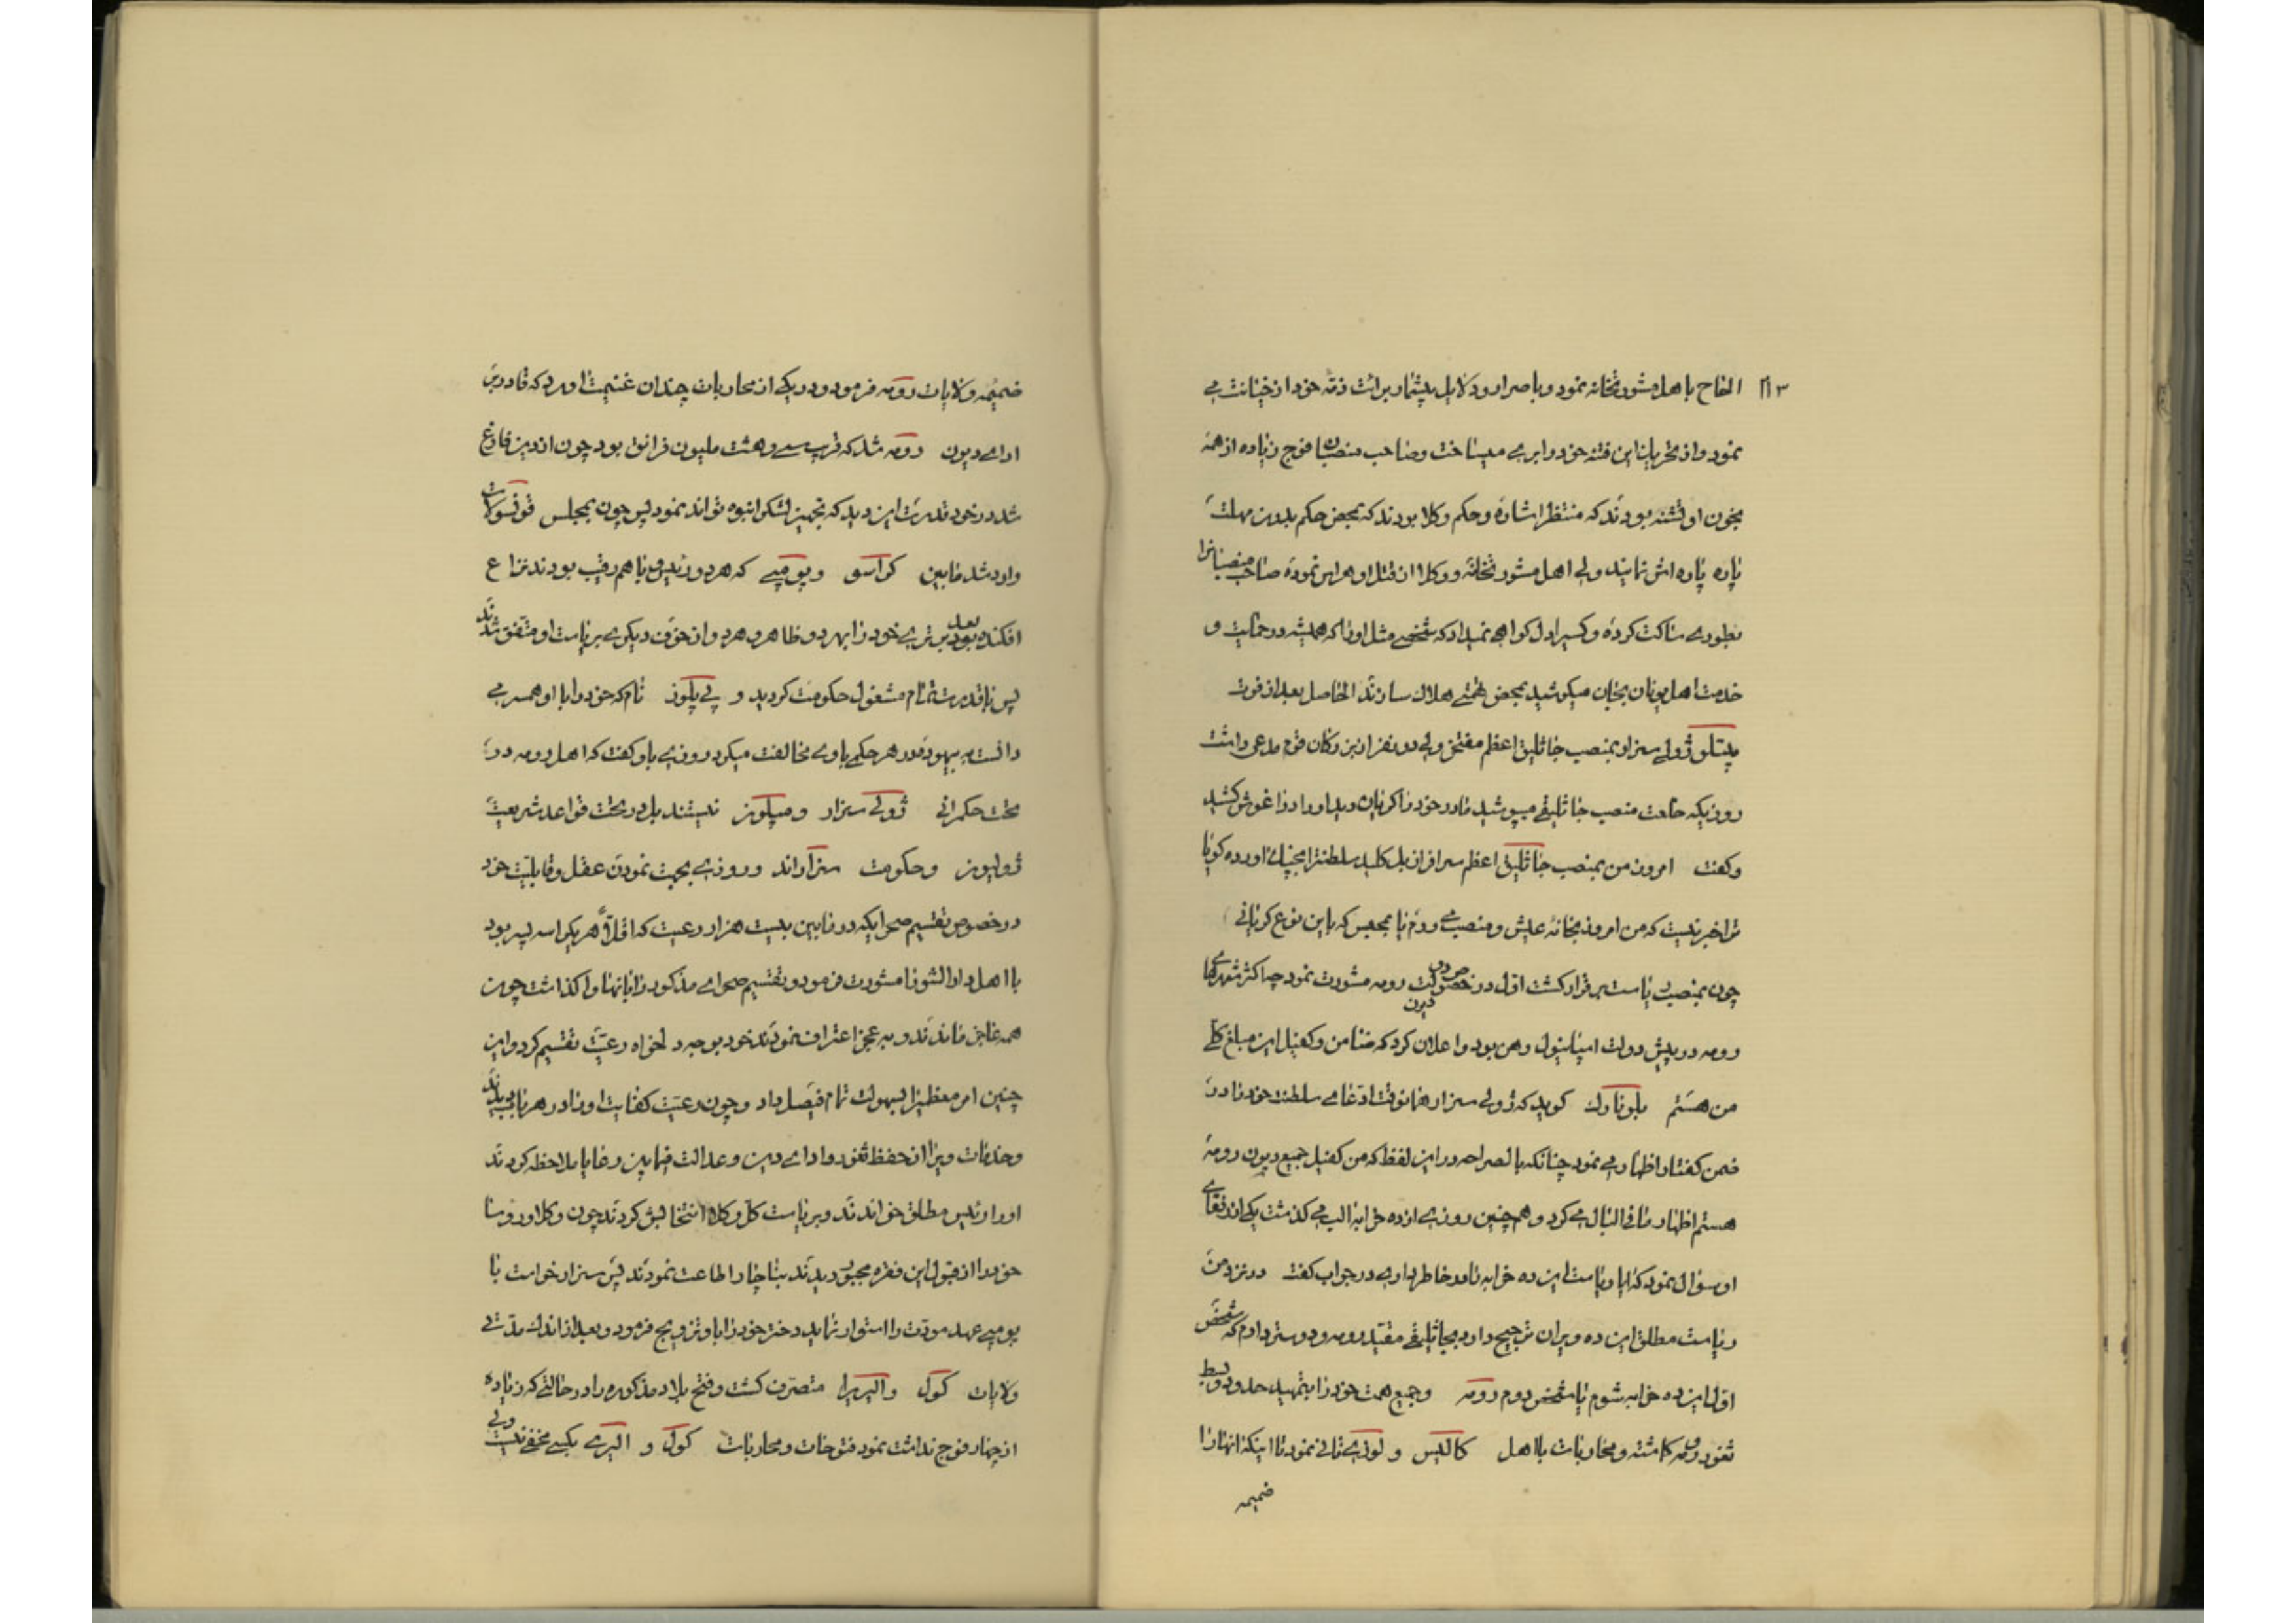 ۲۱۳
الحاح با اهل مشورتخانه نمود و با صرار و دلایل بیشمار برائت ذمّه خود از خیانت می
نمود و از تحریات این فتنه خود را بری میساخت و صاحب منصبان فوج زیاده از همه
بخون او تشنه بودند که منتظر اشاره و حکم وکلا بودند که بمحض حکم بدون مهلت
پاره پاره اش نمایند ولی اهل مشورتخانه و وکلا از قتل او هراس نموده صاحب منصبانرا
بطوری ساکت کرده و کسیرا دل گواهی نمیداد که شخصی مثل او را که همیشه در حمایت و
خدمت اهل یونان بجان میکوشید بمحض تهمتی هلاک سازند الحاصل بعد از فوت
ژولی سزار بمنصب جاثلیق اعظم مفتخر ولی دو نفر از بزرگان قوم مدعی داشت
روزیکه خلعت منصب جاثلیقی میپوشید مادر خود را گریان دید او را در اغوش کشید
و گفت امروز من بمنصب جاثلیق اعظم سرافراز بل کلید سلطنترا بچنگ اورده گویا
ترا خبر نیست که من امروز بخانهٔ عیش و منصب می روم نا بمجلس که باین نوع گریانی
چون بمنصب ریاست برقرار گشت اول در خصوص دیون دولت رومه مشورت نمود چه اکثر شهرهای
رومه در پیش دولت اسپانیول رهن بود و اعلان کرد که ضامن و کفیل این مبلغ کلّی
من هستم پلوتارک گوید که ژولی سزار همانوقت ادّعای سلطنت خود را در
ضمن گفتار اظهار می نمود چنانکه بالصراحه در این لفظ که من کفیل جمیع دیون رومهٔ
هستم اظهار ما فی البال می کرد و همچنین روزی از ده خرابه الپ می گذشت یکی از رفقای
او سؤال نمود که ایا ریاست این ده خرابه را در خاطر داری در جواب گفت در نزد من
ریاست مطلق این ده ویران ترجیح دارد بجاثلیقی مقیّد رومه و دوستر دارم که شخص
اوّل این ده خرابه شوم تا شخص دوم رومه و جمیع همت خود را بتمهید حدود و بسط
ثغور رومه گماشته و محاربات با اهل کالیس و لوزی تانی نمود تا اینکه انها را
ضمیمه
ضمیمه ولایات رومه فرمود و در یکی از محاربات چندان غنیمت اورد که قادر بر
ادای دیون رومه شد که قریب سی و هشت ملیون فرانق بود چون از دین فارغ
شد در خود قدرت این دید که تجهیز لشکر انبوه تواند نمود پس چون بمجلس قونسولات
وارد شد مابین کراسو و پومپی که هر دو رئیس و با هم رقیب بودند نزاع
افکنده بعد برتری خود را بهر دو ظاهر و هر دو از خوف دیگری بریاست او متفق شدند
پس با قدرت تمام مشغول حکومت گردید و بی بلوز نام که خود را با او همسر می
دانست بیهوده در هر حکم با وی مخالفت میکرد روزی باو گفت که اهل رومه در
تحت حکمرانی ژولی سزار و بیبلوز نیستند بل در تحت قواعد شریعت
ژولیوز و حکومت سزاراند و روزی بجهت نمودن عقل و قابلیّت خود
در خصوص تقسیم صحرائیکه در مابین بیست هزار رعیت که اقلاً هر یکرا سه پسر بود
با اهل دارالشورا مشورت فرمود و تقسیم صحرای مذکور را بانها واگذاشت چون
همه عاجز ماندند و بر عجز اعتراف نمودند خود بوجه دلخواه رعیت تقسیم کرد و این
چنین امر معظم را بسهولت تمام فیصل داد و چون رعیّت کفایت او را در هر باب دیدند
و خدمات ویرا از حفظ ثغور و ادای دین و عدالت فیمابین رعایا ملاحظه کردند
او را رئیس مطلق خواندند و بریاست کل وکلا انتخابش کردند چون وکلا و روسا
خود را از قبول این فقره مجبور دیدند بناچار اطاعت نمودند پس سزار خواست با
پومپی عهد مودّت را استوار نماید دختر خود را باو تزویج فرمود و بعد از اندک مدّتی
ولایات گول و الیریرا متصرّف گشت و فتح بلاد مذکوره را در حالتی که زیاده
از چهار فوج نداشت نمود فتوحات و محاربات گول و الیری بکسی مخفی نیست ولی